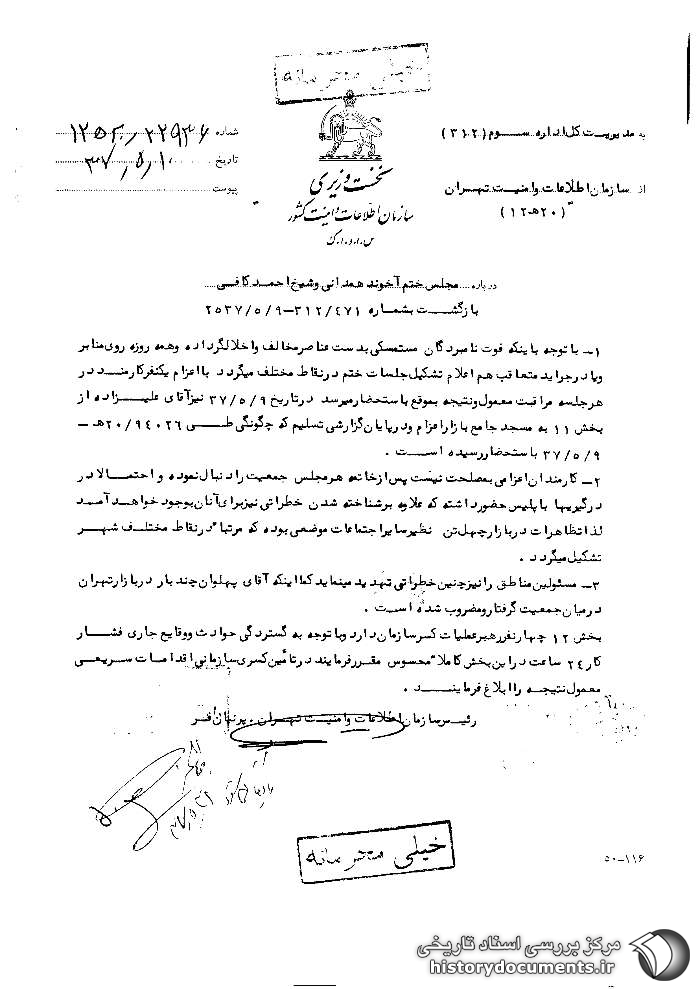 خیلی محرمانه
به مدیریت کل اداره سوم (۳۱۲)
شماره
تاریخ ۳۷/۵/۱۰
پیوست
از سازمان اطلاعات وامنیت تهران
(۲۰هـ۱۲)
نخست وزیری
سازمان اطلاعات و امنیت کشور
س.ا.و.ا.ک
درباره مجلس ختم آخوند همدانی وشیخ احمد کافی
بازگشت بشماره ۳۱۲/۴۷۱-۲۵۳۷/۵/۹
۱- با توجه باینکه فوت نامبردگان مستمسکی بدست عناصر مخالف واخلالگر داده وهمه روزه روی منابر
ویا در جراید متعاقب هم اعلام تشکیل جلسات ختم در نقاط مختلف میگردد با اعزام یکنفر کارمند در
هر جلسه مراقبت معمول ونتیجه بموقع باستحضار میرسد در تاریخ ۳۷/۵/۹ نیز آقای علیزاده از
بخش ۱۱ به مسجد جامع بازار اعزام ودر پایان گزارشی تسلیم که چگونگی طی ۲۰/۹۴۰۲۶هـ -
۳۷/۵/۹ باستحضار رسیده است .
۲- کارمندان اعزامی بمصلحت نیست پس از خاتمه هر مجلس جمعیت را دنبال نموده و احتمالا در
درگیریها با پلیس حضور داشته که علاوه بر شناخته شدن خطراتی نیز برای آنان بوجود خواهد آمد
لذا تظاهرات در بازار چهل تن نظیر سایر اجتماعات موضعی بوده که مرتبا" در نقاط مختلف شهر
تشکیل میگردد .
۳- مسئولین مناطق را نیز چنین خطراتی تهدید مینماید کما اینکه آقای پهلوان چند بار در بازار تهران
در میان جمعیت گرفتار ومضروب شده است .
بخش ۱۲ چهار نفر رهبر عملیات کسر سازمان دارد وبا توجه به گستردگی حوادث ووقایع جاری فشار
کار ۲۴ ساعت در این بخش کاملا" محسوس مقرر فرمایند در تأمین کسری سازمانی اقدامات سریعی
معمول نتیجه را ابلاغ فرمایند .
رئیس سازمان اطلاعات وامنیت تهران . پرنیان فر
خیلی محرمانه
۵۰-۱۱۶
مرکز بررسی اسناد تاریخی
historydocuments.ir